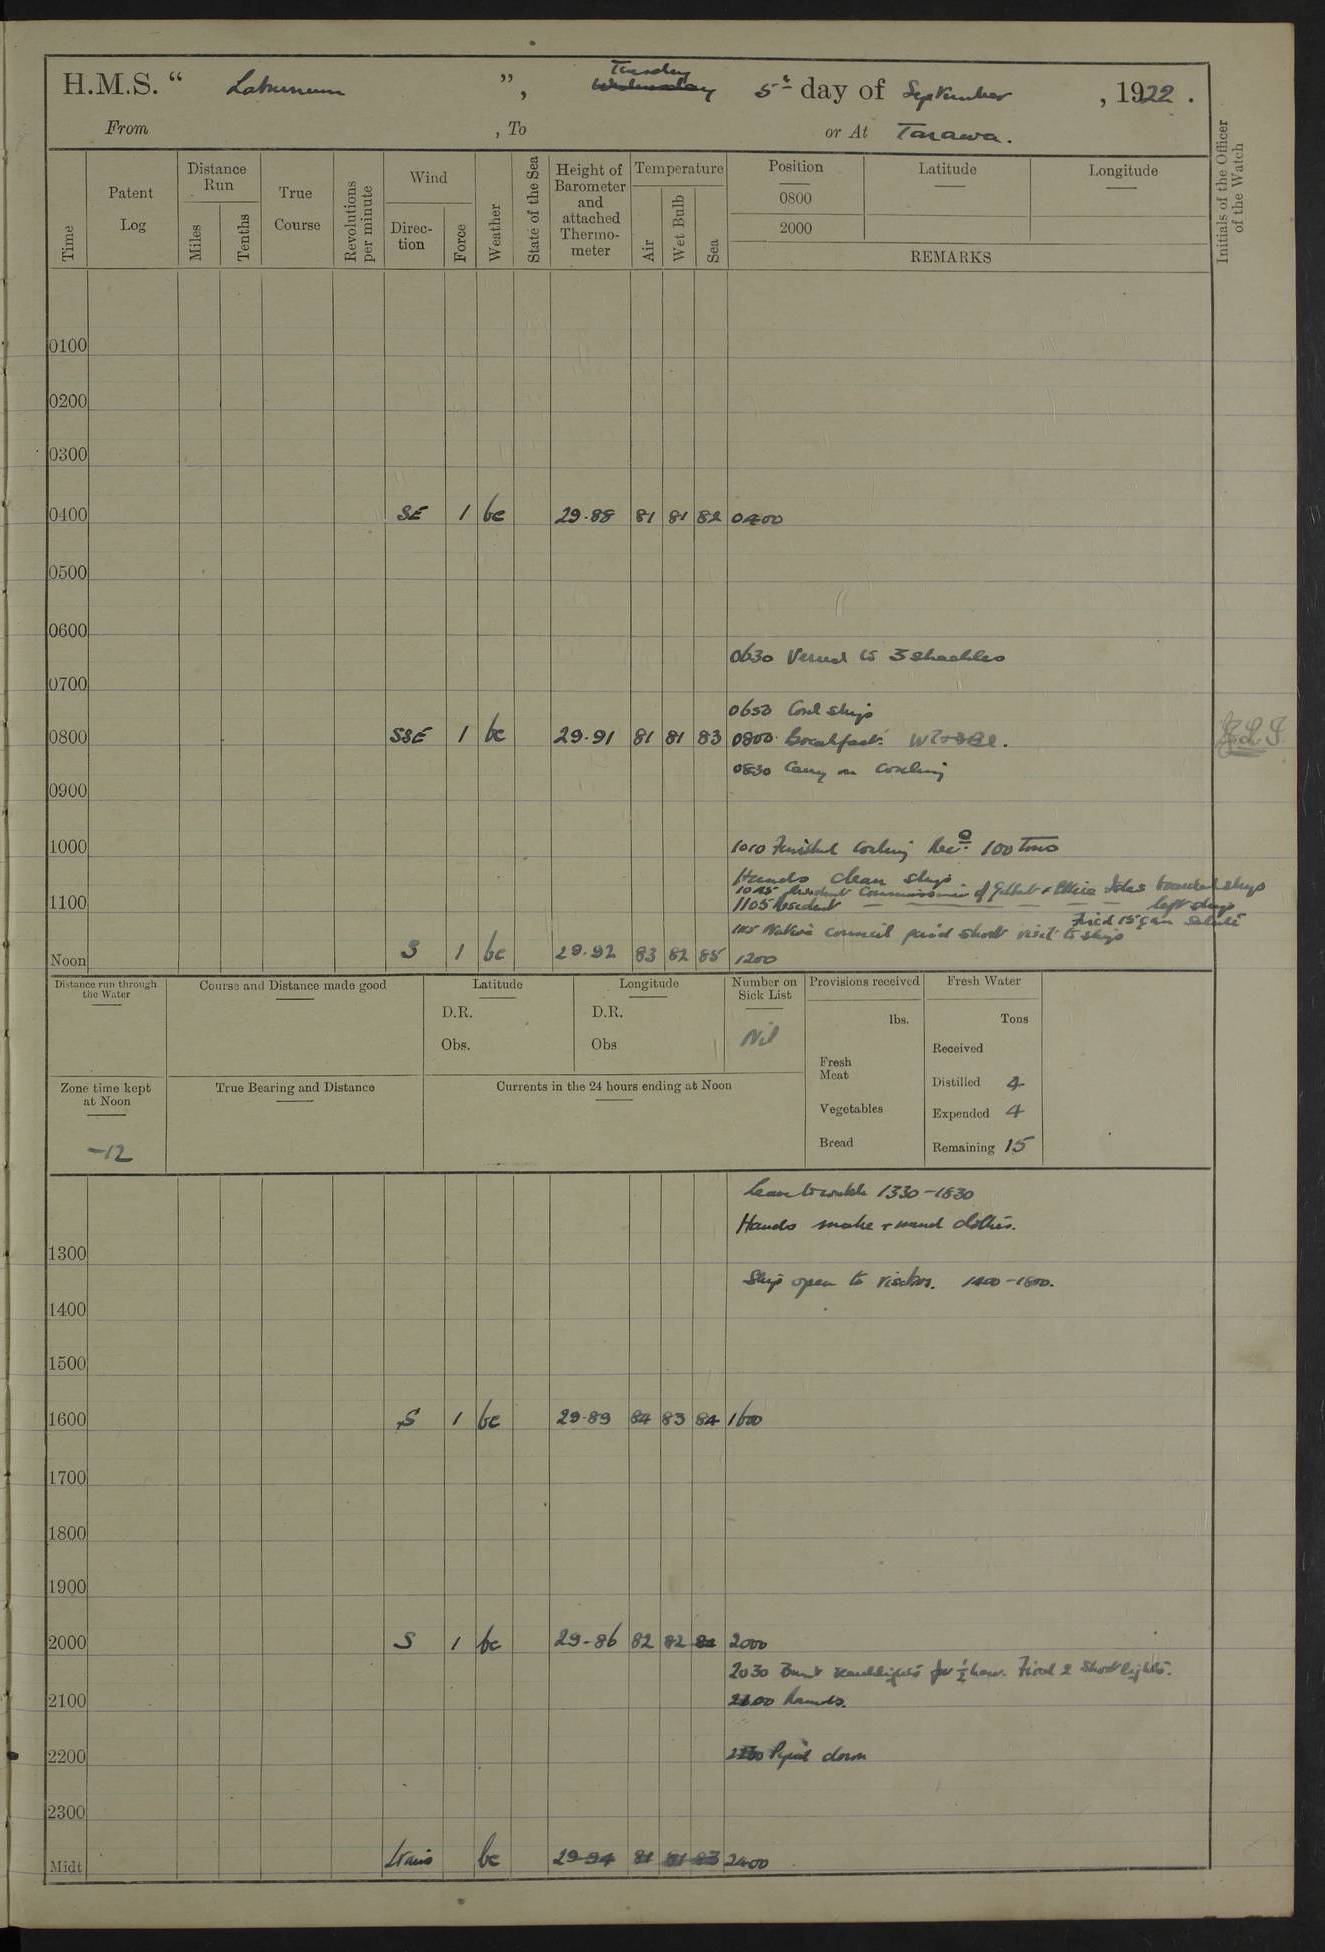 Tuesday
H.M.S. “ Laburnum ”, Wednesday 5th day of September , 1922 .
From , To or At Tarawa.
Time
Patent Log
Distance Run
Miles
Tenths
True Course
Revolutions per minute
Wind
Direction
Force
Weather
State of the Sea
Height of Barometer and attached Thermometer
Temperature
Air
Wet Bulb
Sea
Position
0800
2000
Latitude
Longitude
REMARKS
Initials of the Officer of the Watch
0100
0200
0300
0400 SE 1 bc 29.88 81 81 82 0400
0500
0600
0630 Veered to 3 shackles
0700
0650 Coal ship
0800 SSE 1 bc 29.91 81 81 83 0800 Breakfast.
0830 Carry on Coaling
0900
1000 1010 Finished Coaling Recd 100 Tons
Hands clean ship
1045 Resident Commissioner of Gilbert & Ellice Isles boarded ship
1100 1105 Resident — — — — — left ship
Fired 15 gun Salute
Native Council paid short visit to ship
Noon S 1 bc 29.92 83 82 85 1200
Distance run through the Water
Course and Distance made good
Latitude
D.R.
Obs.
Longitude
D.R.
Obs
Number on Sick List
Nil
Provisions received
lbs.
Fresh Meat
Vegetables
Bread
Fresh Water
Tons
Received
Distilled 4
Expended 4
Remaining 15
Zone time kept at Noon
-12
True Bearing and Distance
Currents in the 24 hours ending at Noon
leave to watch 1330-1830
Hands make & mend clothes.
1300
Ship open to visitors. 1400-1800.
1400
1500
1600 S 1 bc 29.89 84 83 84 1600
1700
1800
1900
2000 S 1 bc 29.86 82 82 84 2000
2030 Burnt searchlights for ½ hour. Fired 2 Short lights.
2100 2100 Rounds.
2200 Piped down
2300
Midt Lt airs bc 29.94 81 81 83 2400